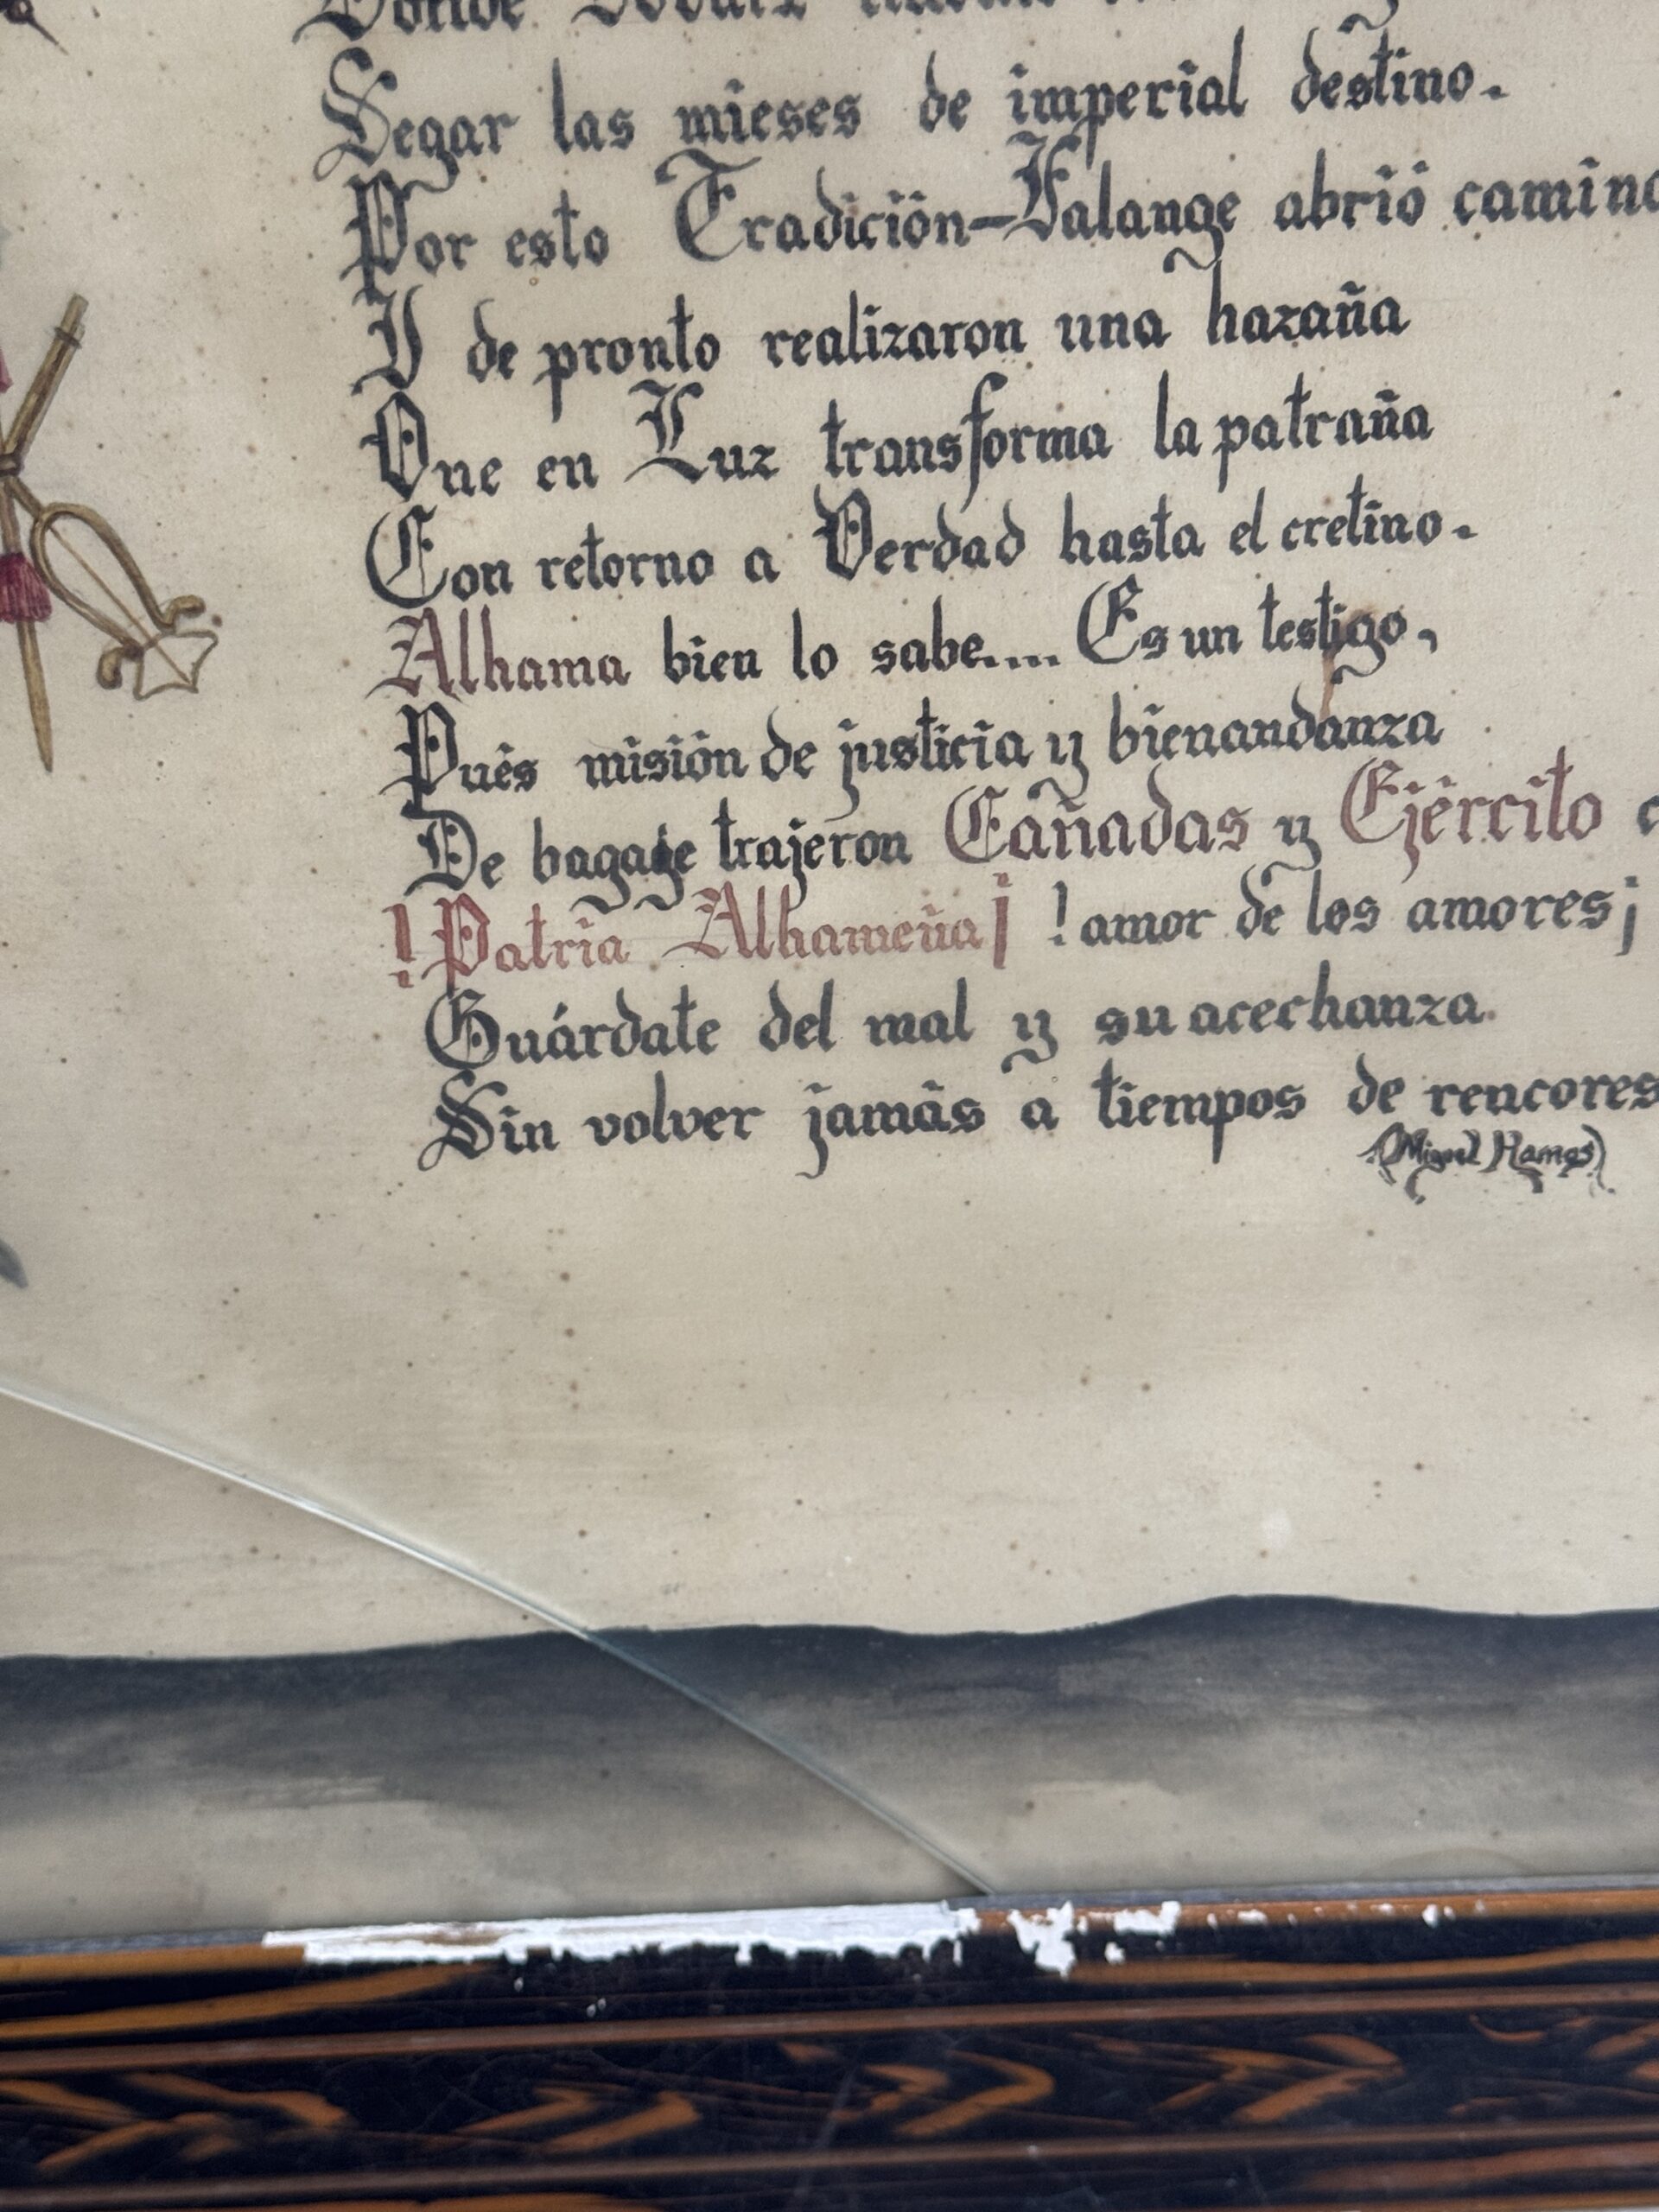 Donde
Segar las mieses de imperial destino.
Por esto Tradición-Falange abrió camino
Y de pronto realizaron una hazaña
Que en Luz transforma la patraña
Con retorno a Verdad hasta el cretino.
Alhama bien lo sabe.... Es un testigo,
Pués misión de justicia y bienandanza
De bagage trajeron Cañadas y Ejército
!Patria Alhameña¡ !amor de los amores¡
Guárdate del mal y su acechanza.
Sin volver jamás a tiempos de rencores
(Miguel Ramos)